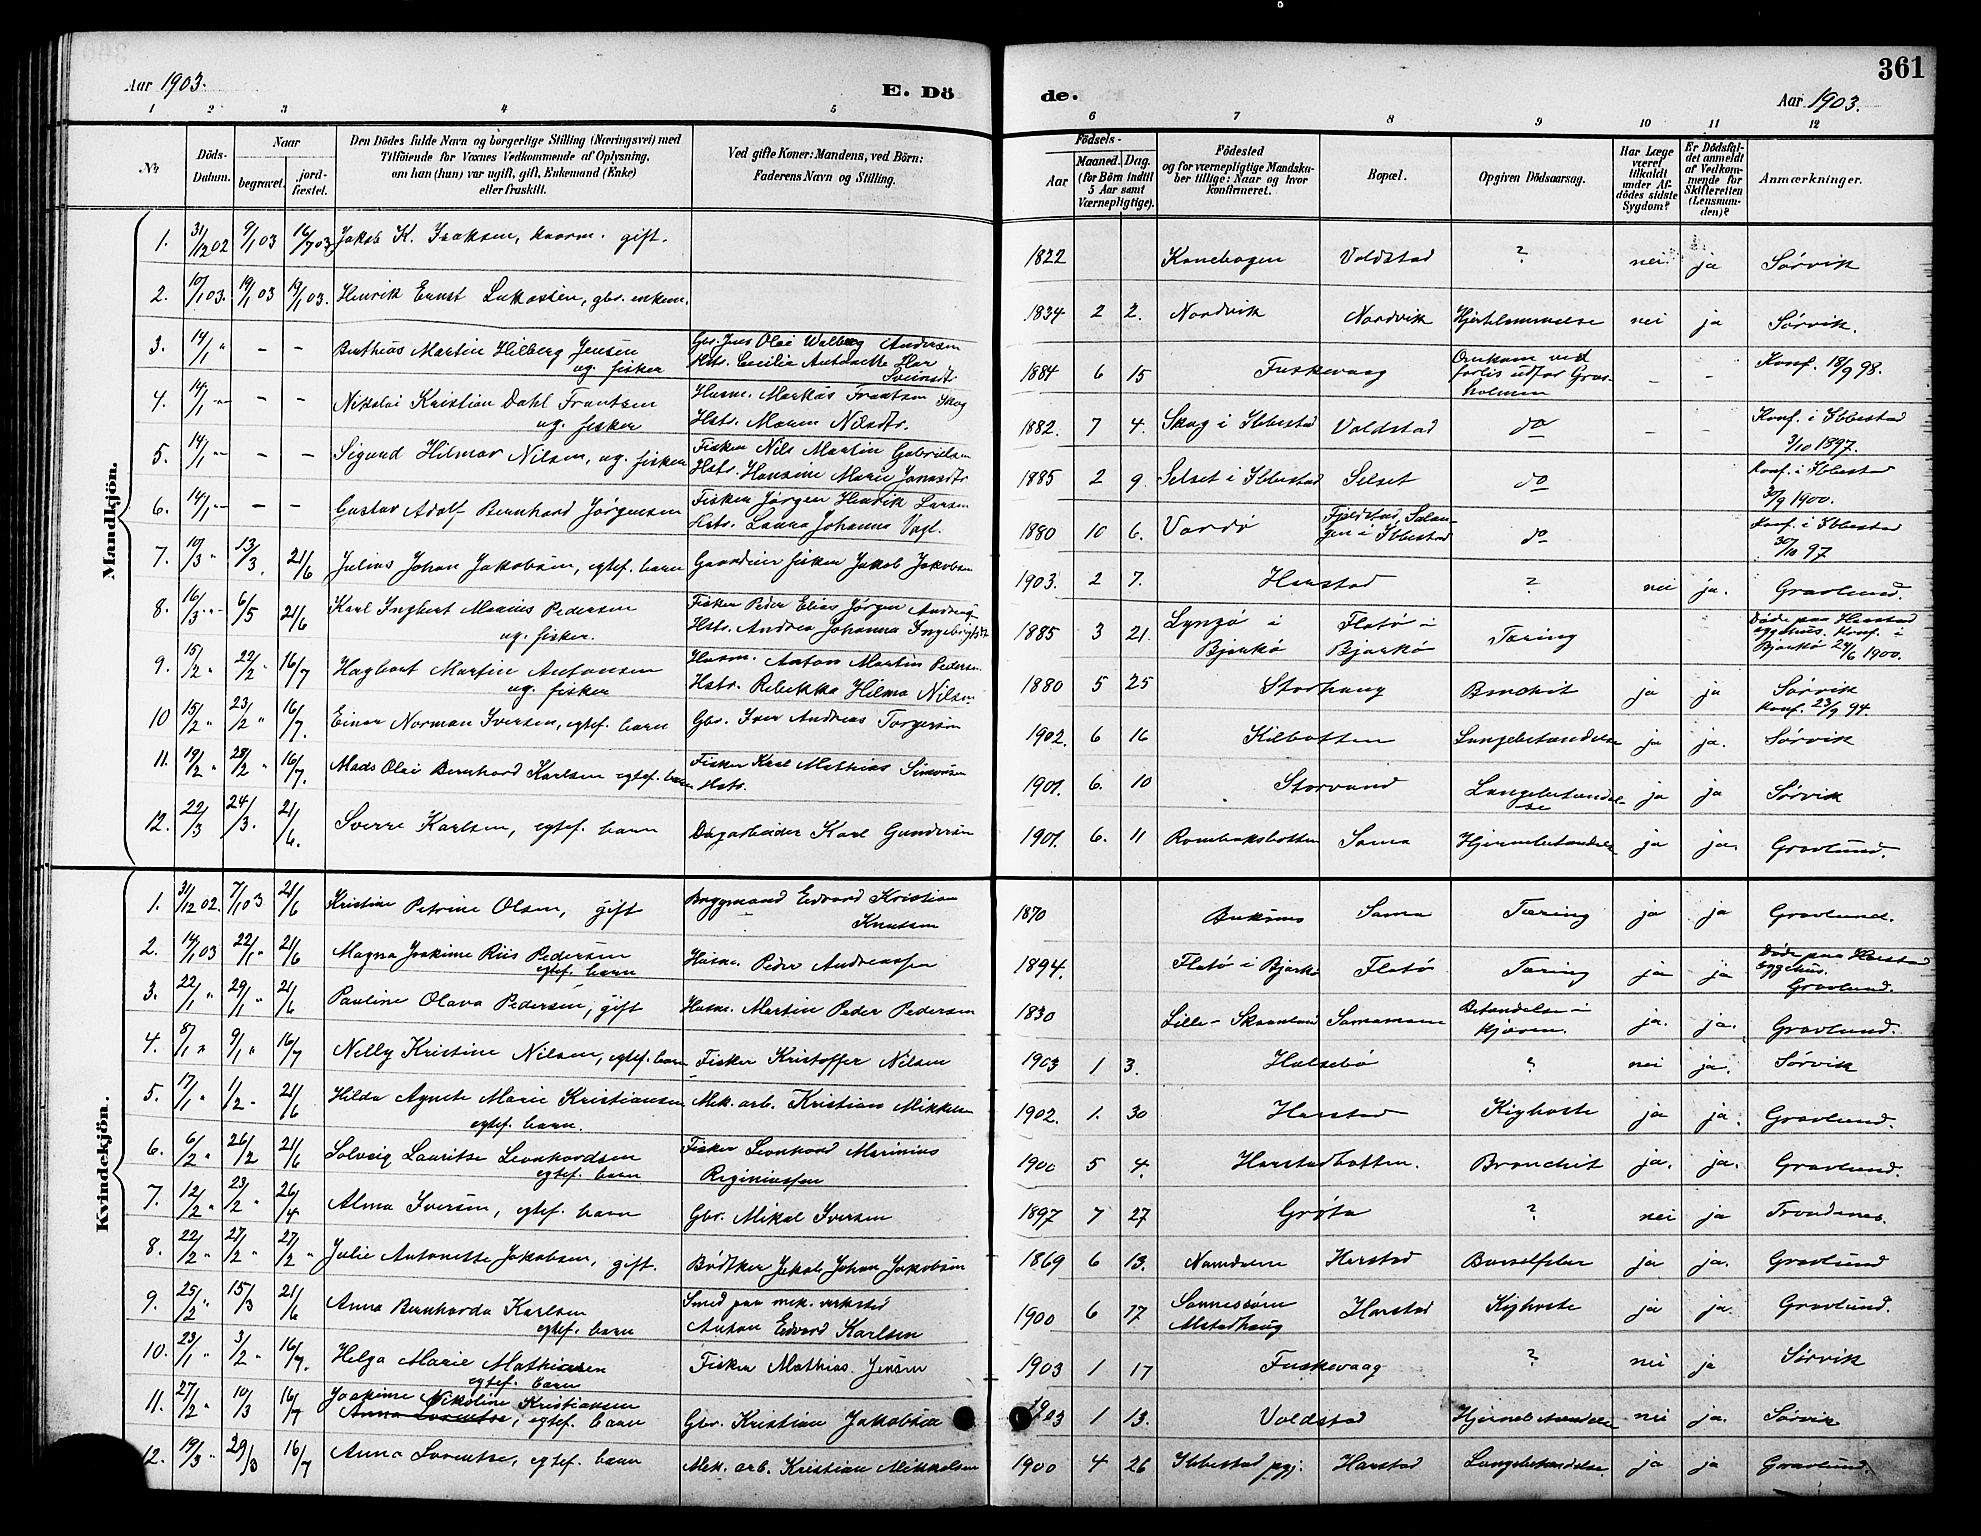 361
Aar 1903.
E. Dö
de.
Aar 1903.
1 2 3 4 5
6 7 8 9 10 11 12
No.
Döds-Datum.
Naar
begravet.
jordfæstet.
Den Dödes fulde Navn og borgerlige Stilling (Næringsvei) med
Tilföiende for Voxnes Vedkommende af Oplysning,
om han (hun) var ugift, gift, Enkemand (Enke)
eller fraskilt.
Ved gifte Koner: Mandens, ved Börn:
Faderens Navn og Stilling.
Födsels-
Aar
Maaned. Dag.
(for Börn indtil
5 Aar samt
Værnepligtige).
Födested
og for værnepligtige Mandska-
ber tillige: Naar og hvor
konfirmeret.
Bopæl.
Opgiven Dödsaarsag.
Har Læge
været
tilkaldt
under Af-
dödes sidste
Sygdom?
Er Dödsfal-
det anmeldt
af Vedkom-
mende for
Skifteretten
(Lensman-
den)?
Anmærkninger.
Mandkjön.
1. 31/12 02 9/1 03 16/7 03 Jakob K. Isaksen, kaarm. gift. 1822 Kanebogen Voldstad ? nei ja Sørvik
2. 10/1 03. 19/1 03 19/1 03. Henrik Ernst Lukasen, gbr. enkem. 1834 2 2. Nordvik Nordvik Hjertelammelse nei ja Sørvik.
3. 14/1 " - - Berthias Martin Hilberg Jensen
ug. fisker
Gbr. Jens Olai Walberg Andersen
Hstr. Cecilie Antonette
1884 6 15 Fuskevaag Omkom ved
forlis udfor Gras-
holmen
- - Konf. 18/9 98.
4. 14/1 - - - Nikolai Kristian Dahl Frantsen
ug. fisker
Husm. Markus Frantsen Skog
Hstr. Maren Nilsdtr.
1882. 7 4. Skog i Ibbestad Voldstad do - - Konf. i Ibbestad
3/10 1897.
5. 14/1 - - - Sigurd Hilmar Nilsen, ug. fisker
Fisker Nils Martin Gabrielsen
Hstr. Hansine Marie Jonasdtr
1885 2 9. Selset i Ibbestad Selset do Konf. i Ibbestad
30/9 1900.
6. 14/1 - - - Gustav Adolf Bernhard Jørgensen
Fisker Jørgen Henrik Larsen
Hstr. Laura Johanna Vogl.
1880 10 6. Vardø Fjeldstad, Salan-
gen i Ibbestad do Konf. i Ibbestad
30/10 97
7. 10/3 " 13/3. 21/6 Julius Johan Jakobsen, egtef. barn Gaardeier fisker Jakob Jakobsen 1903. 2 7. Harstad ? nei ja. Gravlund.
8. 16/3 - 6/5 21/6 Karl Ingbert Marius Pedersen
ug. fisker.
Fisker Peder Elias Jørgen
Hstr. Andrea Johanna Ingebrigtsdtr
1885 3 21. Lyngø i
Bjarkø Flatø i
Bjarkø Tæring Døde paa Harstad
sygehus. Konf. i
Bjarkø 24/6 1900.
9. 15/2 " 22/2 " 16/7 Hagbart Martin Antonsen
ug. fisker
Husm. Anton Martin Pedersen
Hstr. Rebekka Hilma Nilsen
1880 5 25 Storhaug Bronchit ja ja Sørvik
Konf. 23/9 94.
10 15/2 " 23/2 " 16/7. Einar Norman Iversen, egtef. barn Gbr. Iver Andreas Torgersen 1902. 6 16 Kilbotten Lungebetændelse ja ja. Sørvik
11. 19/2 " 28/2 " 16/7. Mads Olai Bernhard Karlsen egtef. barn
Fisker Karl Mathias Simonsen
Hstr.
1901. 6. 10 Storvand Lungebetændel-
se ja ja Sørvik
12. 22/3 24/3. 21/6. Sverre Karlsen, egtef. barn Dagarbeider Karl Gundersen 1901. 6. 11 Rombaksbotten Sama Hjernebetændelse ja ja. Gravlund.
Kvindekjön.
1. 31/12 02. 7/1 03 21/6 Kristine Petrine Olsen, gift
Bryggemand Edvard Kristian
Knutsen
1870 Buksnes Sama Tæring ja ja Gravlund.
2. 14/1 03 22/1 " 21/6 Magna Joakime Riis Pedersen
egtef. barn
Husm. Peder Andreassen
1894. Flatø i Bjarkø Flatø Tæring ja ja Døde paa Harstad
sygehus.
Gravlund.
3. 22/1 " 29/1 " 21/6 Pauline Olava Pedersen, gift Husm. Martin Peder Pedersen 1830 Lille-Skaanland Samamoen Betændelse i
kjæven. ja. ja. Gravlund.
4. 8/1 " 9/1 " 16/7 Nelly Kristine Nilsen, egtef. barn Fisker Kristoffer Nilsen 1903 1 3. Halsebø ? nei ja. Sørvik
5. 17/1 " 1/2 - 21/6 Hilda Agnete Marie Kristiansen
egtef. barn.
Mek. arb. Kristian Mikkelsen
1902. 1. 30 Harstad Kighoste ja ja. Gravlund.
6. 6/2 " 26/2 21/6 Solveig Lauritse Leonhardsen
egtef. barn
Fisker Leonhard Marinius
Reginiussen
1900 5 4. Harstadbotten. Bronchit ja. ja. Gravlund.
7. 12/2 " 23/2 " 26/4 Alma Iversen, egtef. barn Gbr. Mikal Iversen 1897 7 27 Grøta ? nei ja Trondenes.
8. 22/2 " 27/2 " 27/2 " Julie Antonette Jakobsen, gift. Bødtker Jakob Johan Jakobsen 1869 6 13. Namdalen Harstad Barselfeber ja ja. Gravlund
9. 25/2 " 15/3 21/6 Anna Bernharda Karlsen
egtef. barn
Smed paa mek. verksted
Anton Edvard Karlsen
1900 6 17 Sannessøen
Alstadhaug Harstad Kighoste ja ja. Gravlund.
10. 23/1 " 3/2 " 16/7. Helga Marie Mathiassen
egtef. barn
Fisker Mathias Jensen
1903 1 17 Fuskevaag ? nei ja Sørvik
11. 27/2 " 10/3 16/7 Joakime Nikoline Kristiansen
Anna Lorentse, egtef. barn Gbr. Kristian Jakobsen 1903 1 13. Voldstad Hjernebetændelse nei ja. Sørvik
12. 19/3 " 29/3 16/7 Anna Lorentse, egtef. barn Mek. arb. Kristian Mikkelsen 1900 4 26 Ibbestad pgj. Harstad Lungebetændelse. ja ja Gravlund.